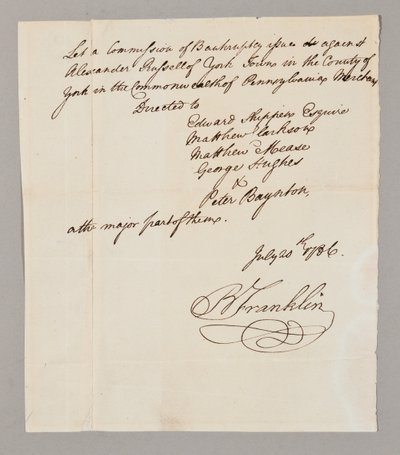 Let a Commission of Bankruptcy issue against
Alexander Russell of York Town in the County of
York in the Commonwealth of Pennsylvania Merchant
Directed to
Edward Shippen Esquire
Matthew Clarkson
Matthew Mease
George Hughes
&
Peter Baynton,
or the major part of them.
July 20th 1786.
B Franklin